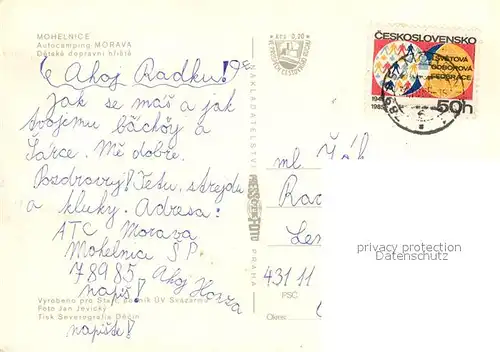 MOHELNICE
Autocamping MORAVA
Dětské dopravní hřiště
Ahoj Radku!
Jak se maš a jak
tvojemu báčhóy a
Šárce. Mě dobře.
Pozdravuj! Tetu, strejdu
a kluky. Adresa:
ATC Morava
Mohelnice SP.
78985
napiš! Ahoj Honza
Vyrobeno pro ÚV Svazarmu
Foto Jan Jevický
Tisk Severografia Děčín
napište!
NAKLADATELSTVÍ
PRESSFOTO
PRAHA
Kčs 0,20
ČESKOSLOVENSKO
SVĚTOVÁ
ODBOROVÁ
FEDERACE
1945
1985
50h
ml
431 11
PSČ
Okres
privacy protection
Datenschutz